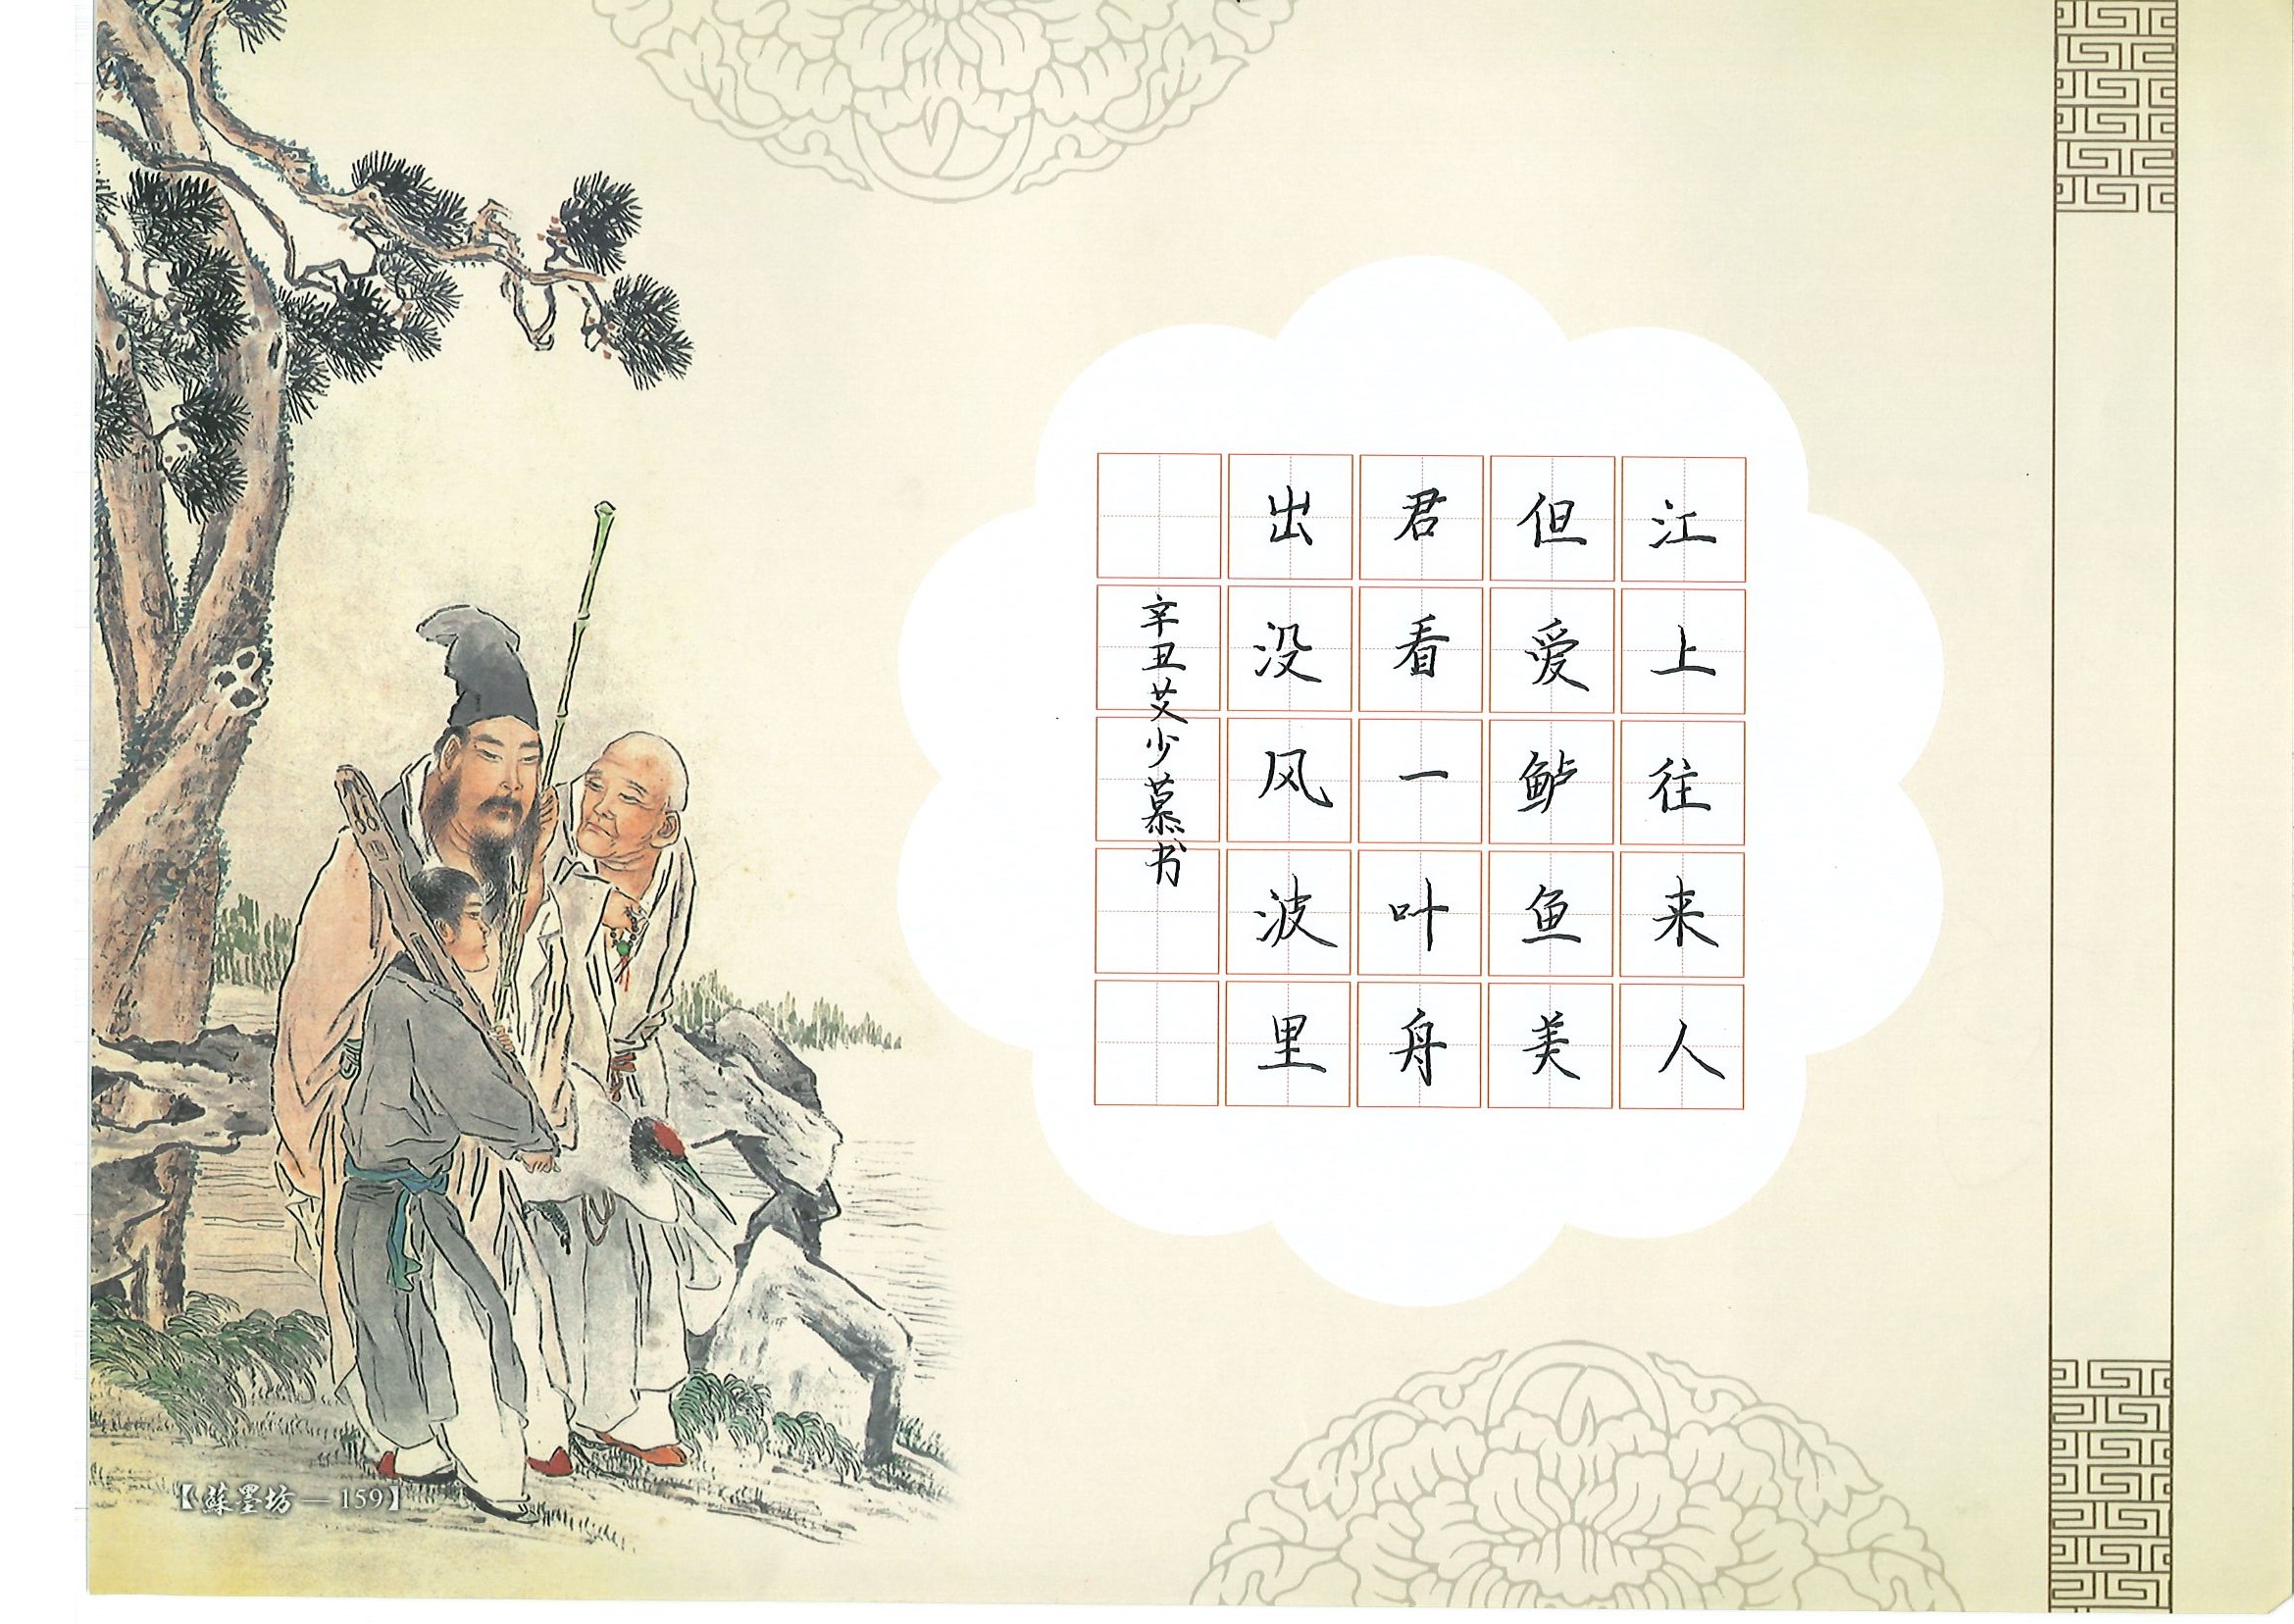 江上往来人
但爱鲈鱼美
君看一叶舟
出没风波里
辛丑艾少慕书
【蘇墨坊—159】